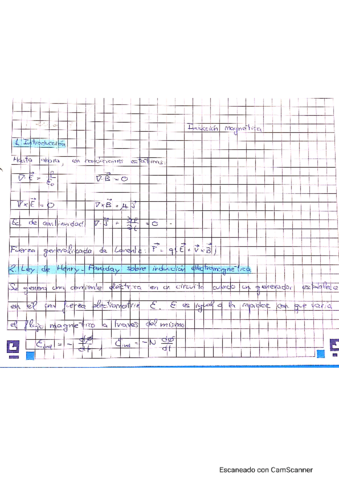 Inducción magnética
1. Introducción
Hasta ahora, en condiciones estáticas:
∇·E = ρ/ε₀    ∇·B = 0
∇×E = 0    ∇×B = μ J
Ec. de continuidad: ∇·J =  = 0
Fuerza generalizada de Lorentz: F = q(E + v×B)
2. Ley de Henry-Faraday sobre inducción electromagnética
Se genera una corriente eléctrica en un circuito cuando un generador establece
en él una fuerza electromotriz ε. ε es igual a la rapidez con que varía
el flujo magnético a través del mismo
ε = - dΦ/dt    ε = -N dΦ/dt
Escaneado con CamScanner